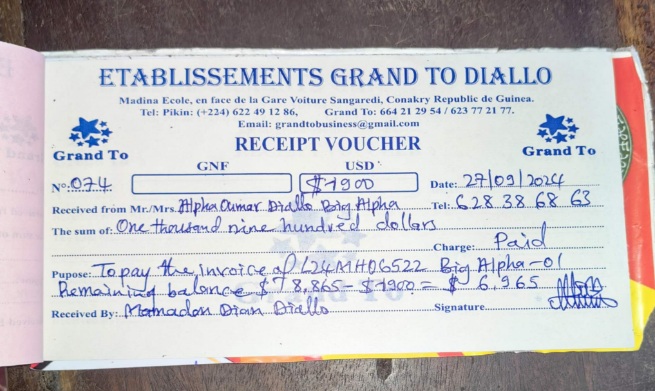 ETABLISSEMENTS GRAND TO DIALLO
Madina Ecole, en face de la Gare Voiture Sangaredi, Conakry Republic de Guinea.
Tel: Pikin: (+224) 622 49 12 86, Grand To: 664 21 29 54 / 623 77 21 77.
Email: grandtobusiness@gmail.com
Grand To
RECEIPT VOUCHER
Grand To
GNF USD
N°. 074 $1900 Date: 27/09/2024
Received from Mr./Mrs. Alpha Oumar Diallo Big Alpha Tel: 628 38 68 63
The sum of: One thousand nine hundred dollars
Charge: Paid
Pupose: To pay the invoice of L24MH06522 Big Alpha-01
Remaining balance $ 8,865 - $1900 = $ 6,965
Received By: Mamadou Dian Diallo Signature